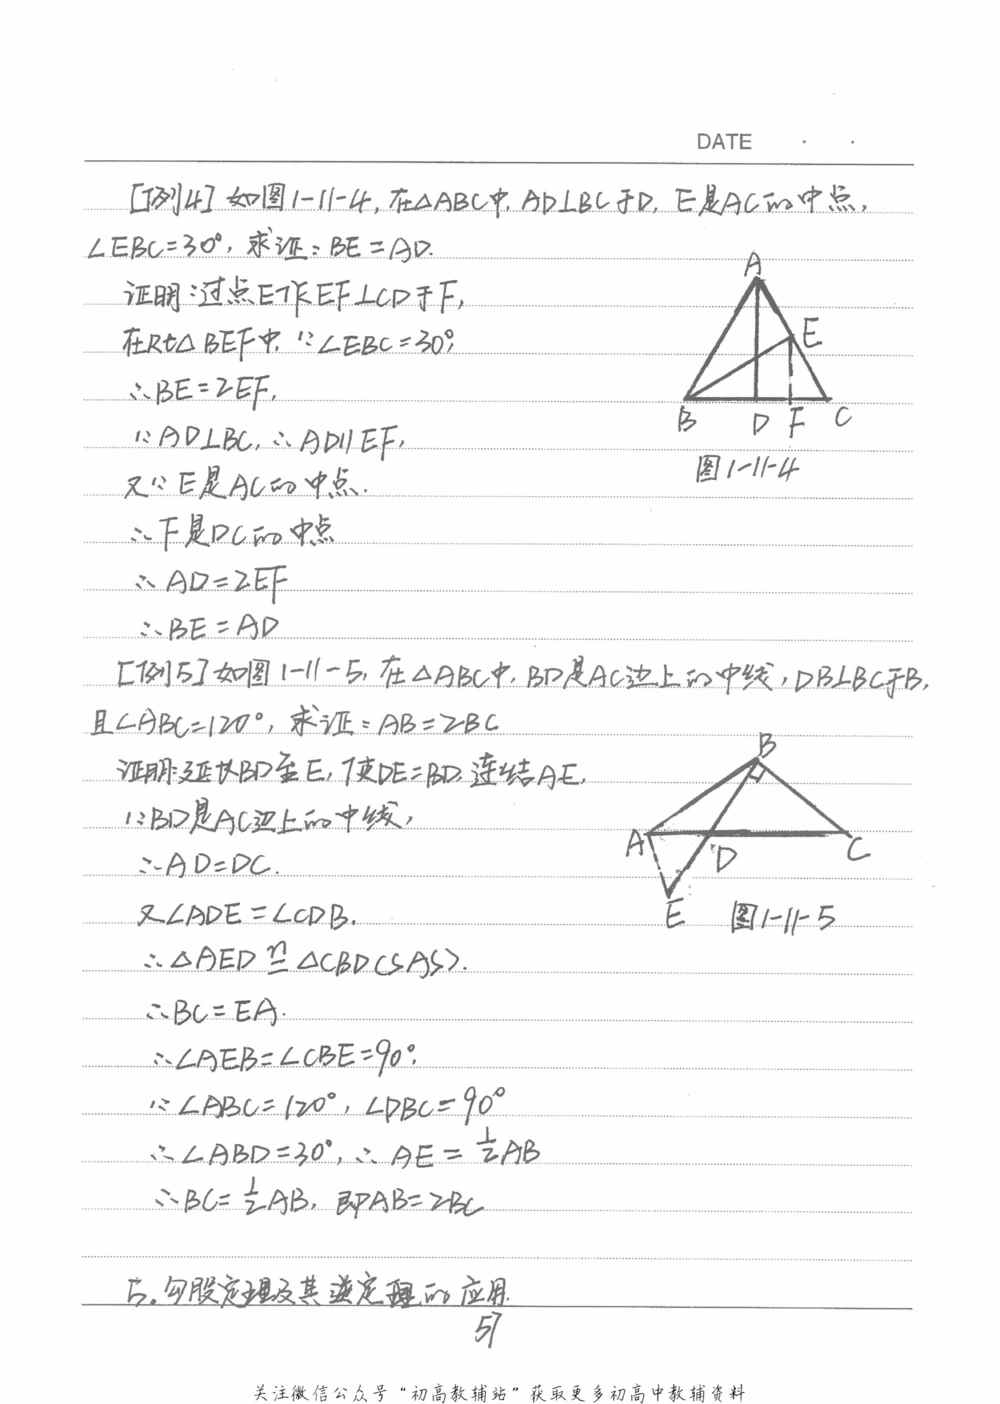 DATE · ·
[例4] 如图1-11-4, 在△ABC中, AD⊥BC于D, E是AC的中点,
∠EBC=30°, 求证: BE=AD.
证明:过点E作EF⊥CD于F,
在Rt△BEF中, ∵∠EBC=30°,
∴BE=2EF.
∵AD⊥BC, ∴AD∥EF,
又∵E是AC的中点.
∴F是DC的中点
∴AD=2EF
∴BE=AD
A
E
B D F C
图1-11-4
[例5] 如图1-11-5, 在△ABC中, BD是AC边上的中线, DB⊥BC于B,
且∠ABC=120°, 求证: AB=2BC
证明:延长BD至E, 使DE=BD. 连结AE,
∵BD是AC边上的中线,
∴AD=DC.
又∠ADE=∠CDB.
∴△AED≌△CBD(SAS).
∴BC=EA.
∴∠AEB=∠CBE=90°.
∵∠ABC=120°, ∠DBC=90°
∴∠ABD=30°, ∴AE=½AB
∴BC=½AB, 即AB=2BC
B
A D C
E
图1-11-5
5.勾股定理及其逆定理的应用.
57
关注微信公众号“初高教辅站”获取更多初高中教辅资料